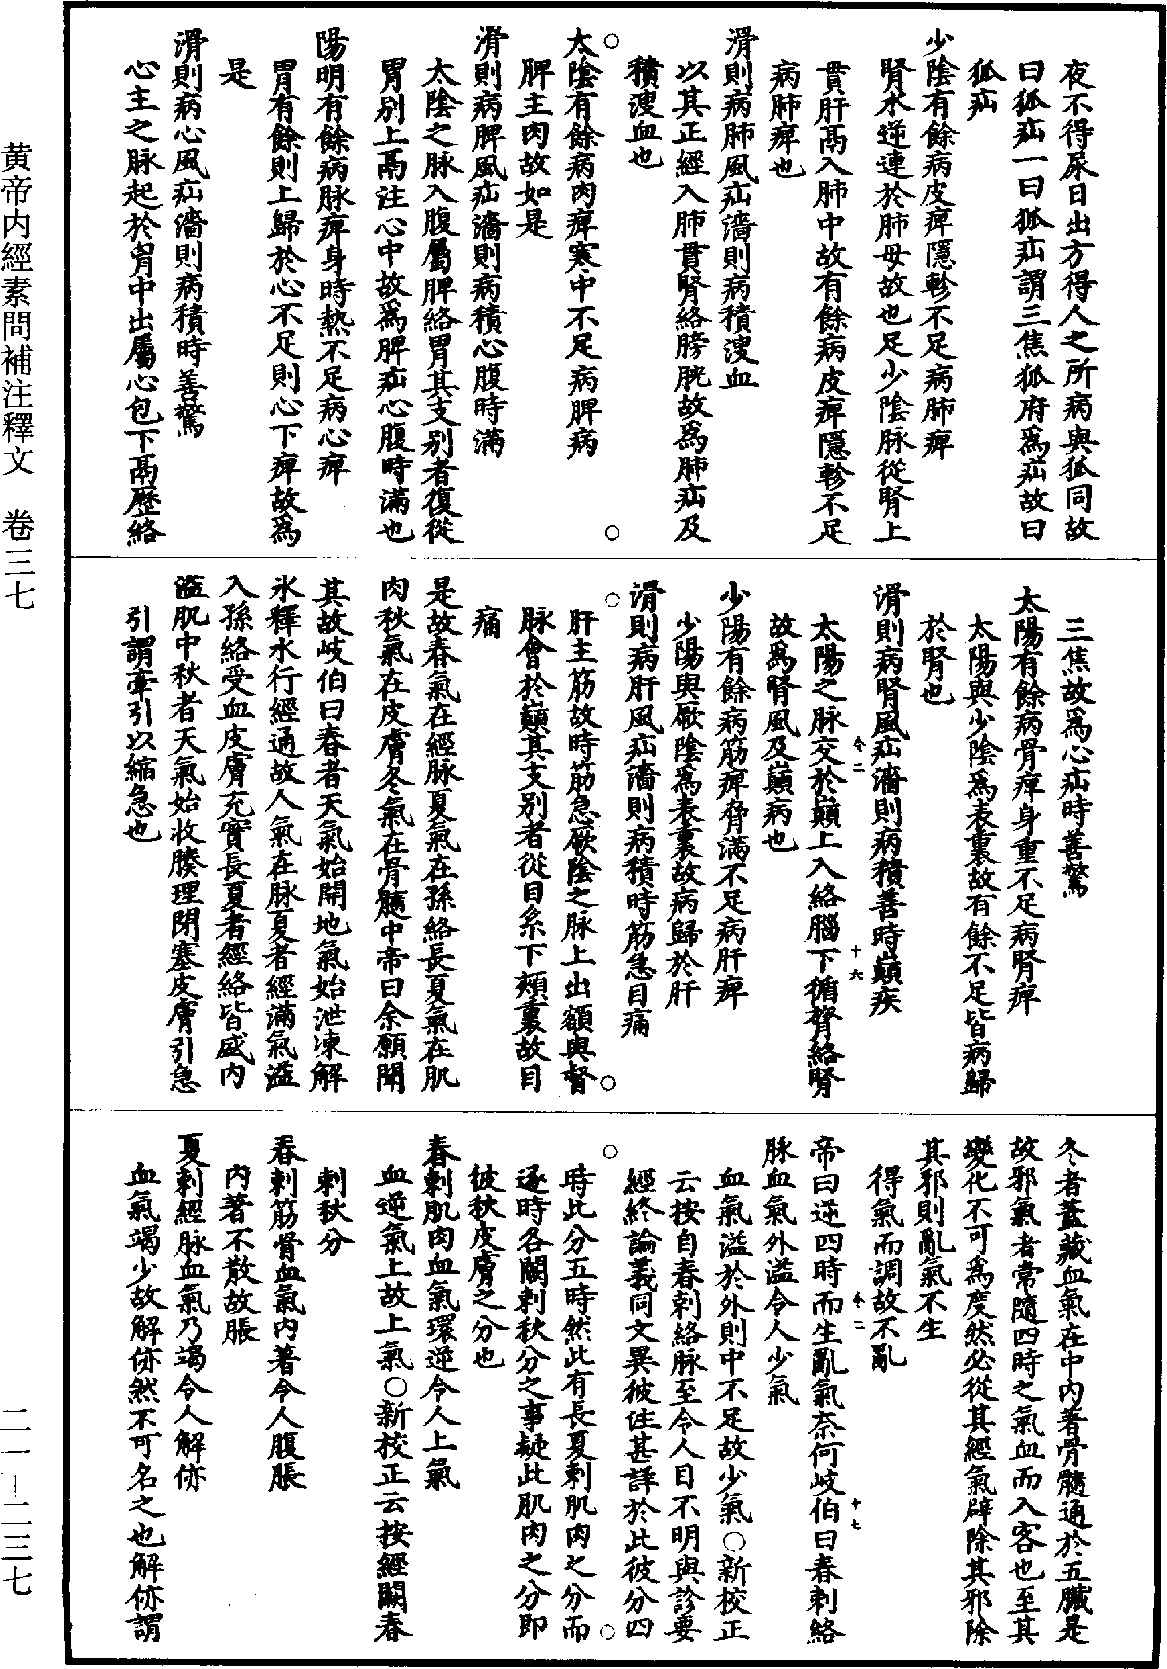 夜不得尿日出方得人之所病與狐同故
曰狐疝一曰狐疝謂三焦狐府爲疝故曰
狐疝
少陰有餘病皮痺隱軫不足病肺痺
腎水逆連於肺母故也足少陰脉從腎上
貫肝鬲入肺中故有餘病皮痺隱軫不足
病肺痺也
滑則病肺風疝濇則病積溲血
以其正經入肺貫腎絡膀胱故爲肺疝及
積溲血也
太陰有餘病肉痺寒中不足病脾病
脾主肉故如是
滑則病脾風疝濇則病積心腹時滿
太陰之脉入腹屬脾絡胃其支别者復從
胃别上鬲注心中故爲脾疝心腹時滿也
陽明有餘病脉痺身時熱不足病心痺
胃有餘則上歸於心不足則心下痺故爲
是
滑則病心風疝濇則病積時善驚
心主之脉起於胷中出屬心包下鬲歷絡
三焦故爲心疝時善驚
太陽有餘病骨痺身重不足病腎痺
太陽與少陰爲表裏故有餘不足皆病歸
於腎也
滑則病腎風疝濇則病積善時巔疾
太陽之脉交於巔上入絡腦下循膂絡腎
故爲腎風及巔病也
少陽有餘病筋痺脅滿不足病肝痺
少陽與厥陰爲表裏故病歸於肝
滑則病肝風疝濇則病積時筋急目痛
肝主筋故時筋急厥陰之脉上出額與督
脉會於巔其支别者從目系下頰裏故目
痛
是故春氣在經脉夏氣在孫絡長夏氣在肌
肉秋氣在皮膚冬氣在骨髓中帝曰余願聞
其故岐伯曰春者天氣始開地氣始泄凍解
冰釋水行經通故人氣在脉夏者經滿氣溢
入孫絡受血皮膚充實長夏者經絡皆盛内
溢肌中秋者天氣始收腠理閉塞皮膚引急
引謂牽引以縮急也
冬者蓋藏血氣在中内著骨髓通於五臟是
故邪氣者常隨四時之氣血而入客也至其
變化不可爲度然必從其經氣辟除其邪除
其邪則亂氣不生
得氣而調故不亂
帝曰逆四時而生亂氣奈何岐伯曰春刺絡
脉血氣外溢令人少氣
血氣溢於外則中不足故少氣○新校正
云按自春刺絡脉至令人目不明與診要
經終論義同文異彼注甚詳於此彼分四
時此分五時然此有長夏刺肌肉之分而
逐時各闕刺秋分之事疑此肌肉之分即
彼秋皮膚之分也
春刺肌肉血氣環逆令人上氣
血逆氣上故上氣○新校正云按經闕春
刺秋分
春刺筋骨血氣内著令人腹脹
内著不散故脹
夏刺經脉血氣乃竭令人解㑊
血氣竭少故解㑊然不可名之也解㑊謂
黄帝内經素問補注釋文　卷三七
二一—二三七